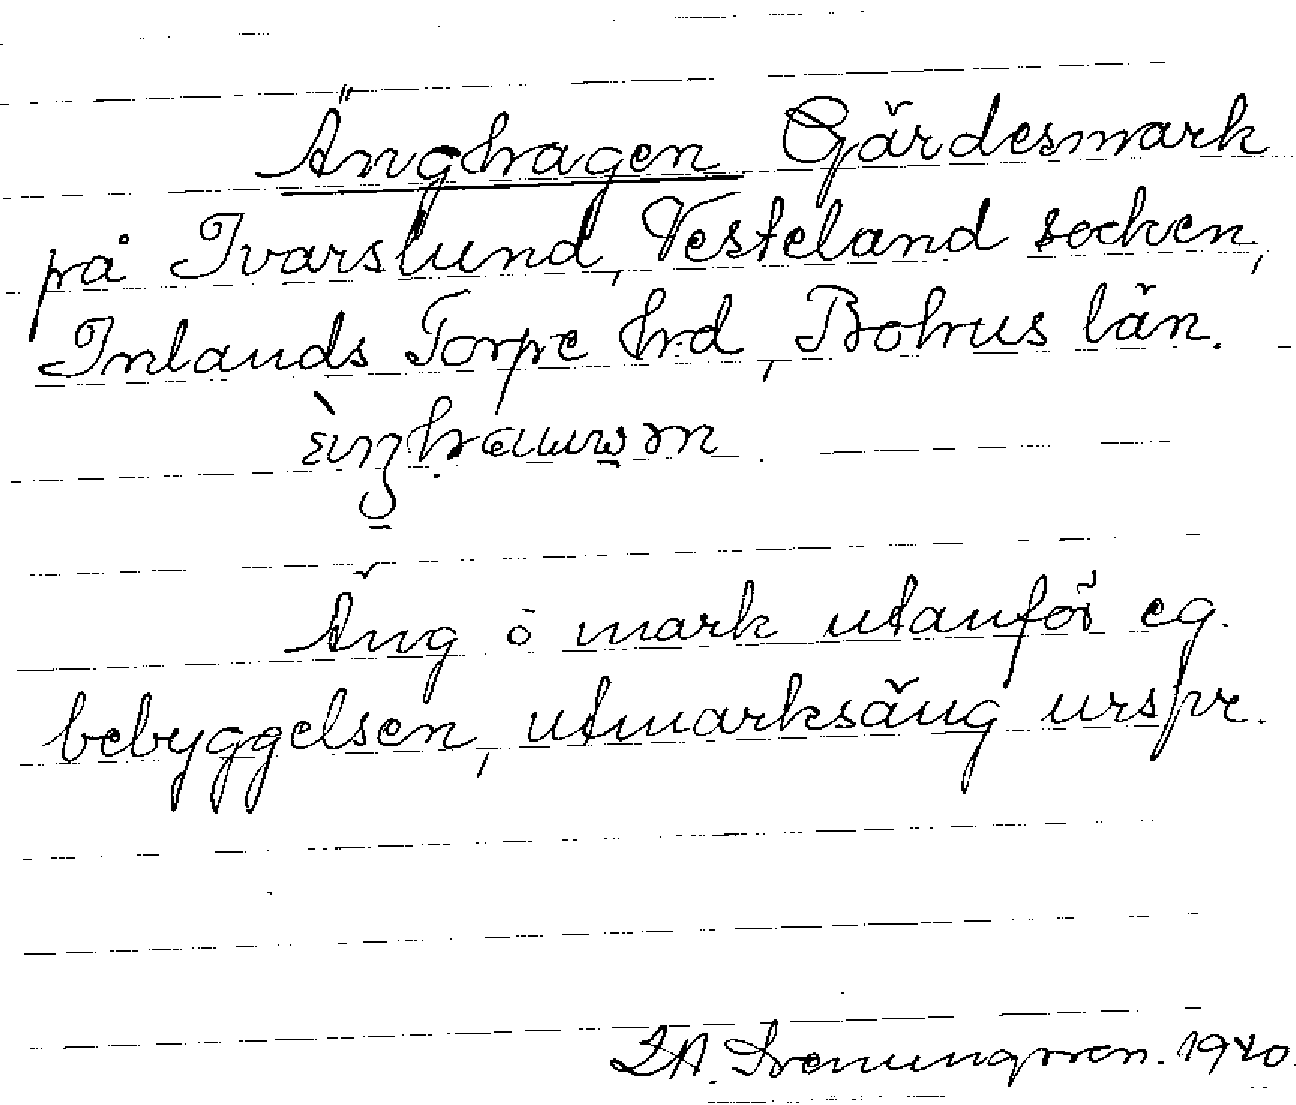 Änghagen Gärdesmark
på Ivarslund, Vesteland socken,
Inlands Torpe hrd, Bohus län.
Äng o mark utanför eg.
bebyggelsen, utmarksäng urspr.
1940.